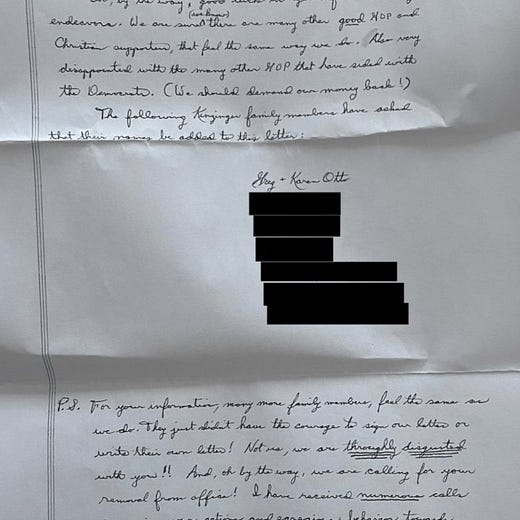 by the way, good luck in
(we know)
endeavors. We are sure there are many other good GOP and
Christian supporters, that feel the same way we do. Also very
disappointed with the many other GOP that have sided with
the Democrats. (We should demand our money back!)
The following Kinzinger family members have asked
that their names be added to this letter:
Greg + Karen Otto
P.S. For your information, many more family members, feel the same as
we do. They just didn't have the courage to sign our letter or
write their own letter! Not us, we are throughly disgusted
with you!! And, oh by the way, we are calling for your
removal from office! I have received numerous calls
actions and behavior towards